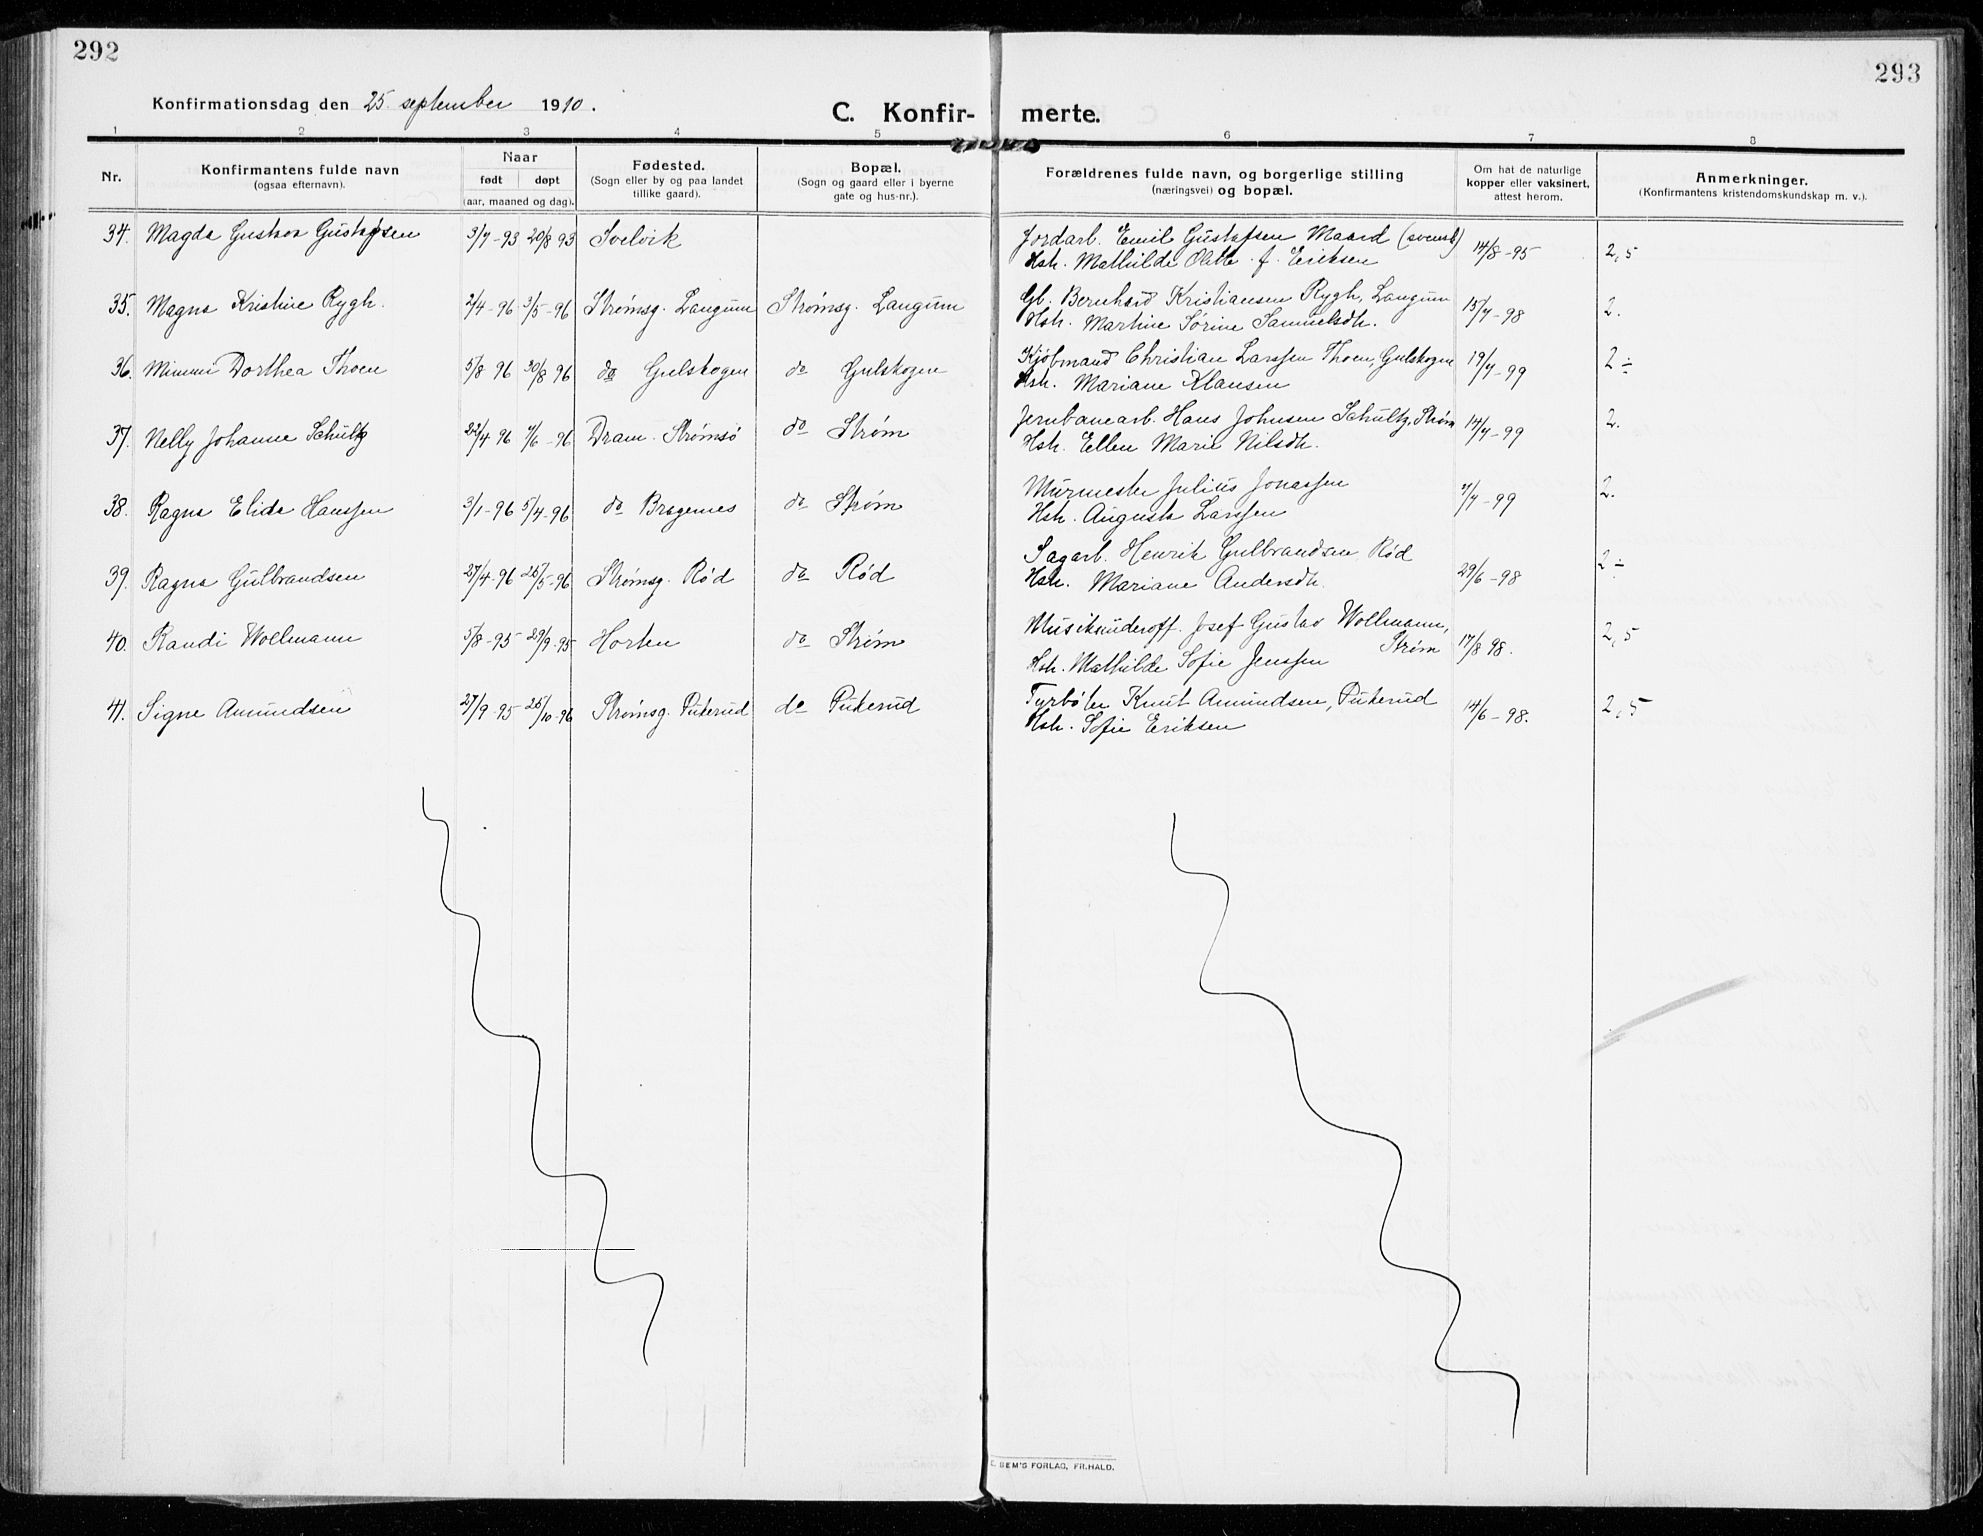 292
293
Konfirmationsdag den 25. september 1910.
C. Konfir-merte.
1 2 3 4 5 6 7 8
Nr.
Konfirmantens fulde navn
(ogsaa efternavn).
Naar
født døpt
(aar, maaned og dag).
Fødested.
(Sogn eller by og paa landet
tillike gaard).
Bopæl.
(Sogn og gaard eller i byerne
gate og hus-nr.).
Forældrenes fulde navn, og borgerlige stilling
(næringsvei) og bopæl.
Om hat de naturlige
kopper eller vaksinert,
attest herom.
Anmerkninger.
(Konfirmantens kristendomskundskap m. v.).
34. Magda Gustava Gustafsen 3/7-93 20/8 93 Svelvik
Jordarb. Emil Gustafsen Maard (svensk) 14/8-95 2,5
Hst. Mathilde Olette f. Eriksen
35. Magna Kristine Rygh. 2/4-96 3/5-96 Strømsg. Langum Strømsg. Langum
Gb. Bernhard Kristiansen Rygh, Langum 15/7-98 2.
Hst. Martine Sørine Samuelsdt.
36. Mimmi Dorthea Thoen 5/8 96 30/8 96 do Gulskogen do Gulskogen
Kjøbmand Christian Larssen Thoen, Gulskogen 19/7-99 2÷
Hst. Mariane Klausen
37. Nelly Johanne Schultz 22/4 96 7/6-96 Dram. Strømsø do Strøm
Jernbanearb. Hans Johnsen Schultz, Strøm 14/7-99 2.
Hst. Ellen Marie Nilsdt.
38. Ragna Elida Hanssen 3/1-96 5/4-96 do Bragernes do Strøm
Murmester Julius Jonassen 7/7-99 2.
Hst. Augusta Larssen
39. Ragna Gulbrandsen 27/4-96 26/5-96 Strømsg. Rød do Rød
Sagarb. Henrik Gulbrandsen Rød 29/6-98 2÷
Hst. Mariane Andersdt.
40. Randi Wollmann 5/8-95 29/9-95 Horten do Strøm
Musikunderoff. Josef Gustav Wollmann, Strøm 17/8 98. 2,5
Hst. Mathilde Sofie Jenssen
41. Signe Amundsen 27/9-95 26/10-96 Strømsg. Pukerud do Pukerud
Tyrbøter Knut Amundsen, Pukerud 14/6-98. 2,5
Hst. Sofie Eriksen
SEM'S FORLAG, FR.HALD.